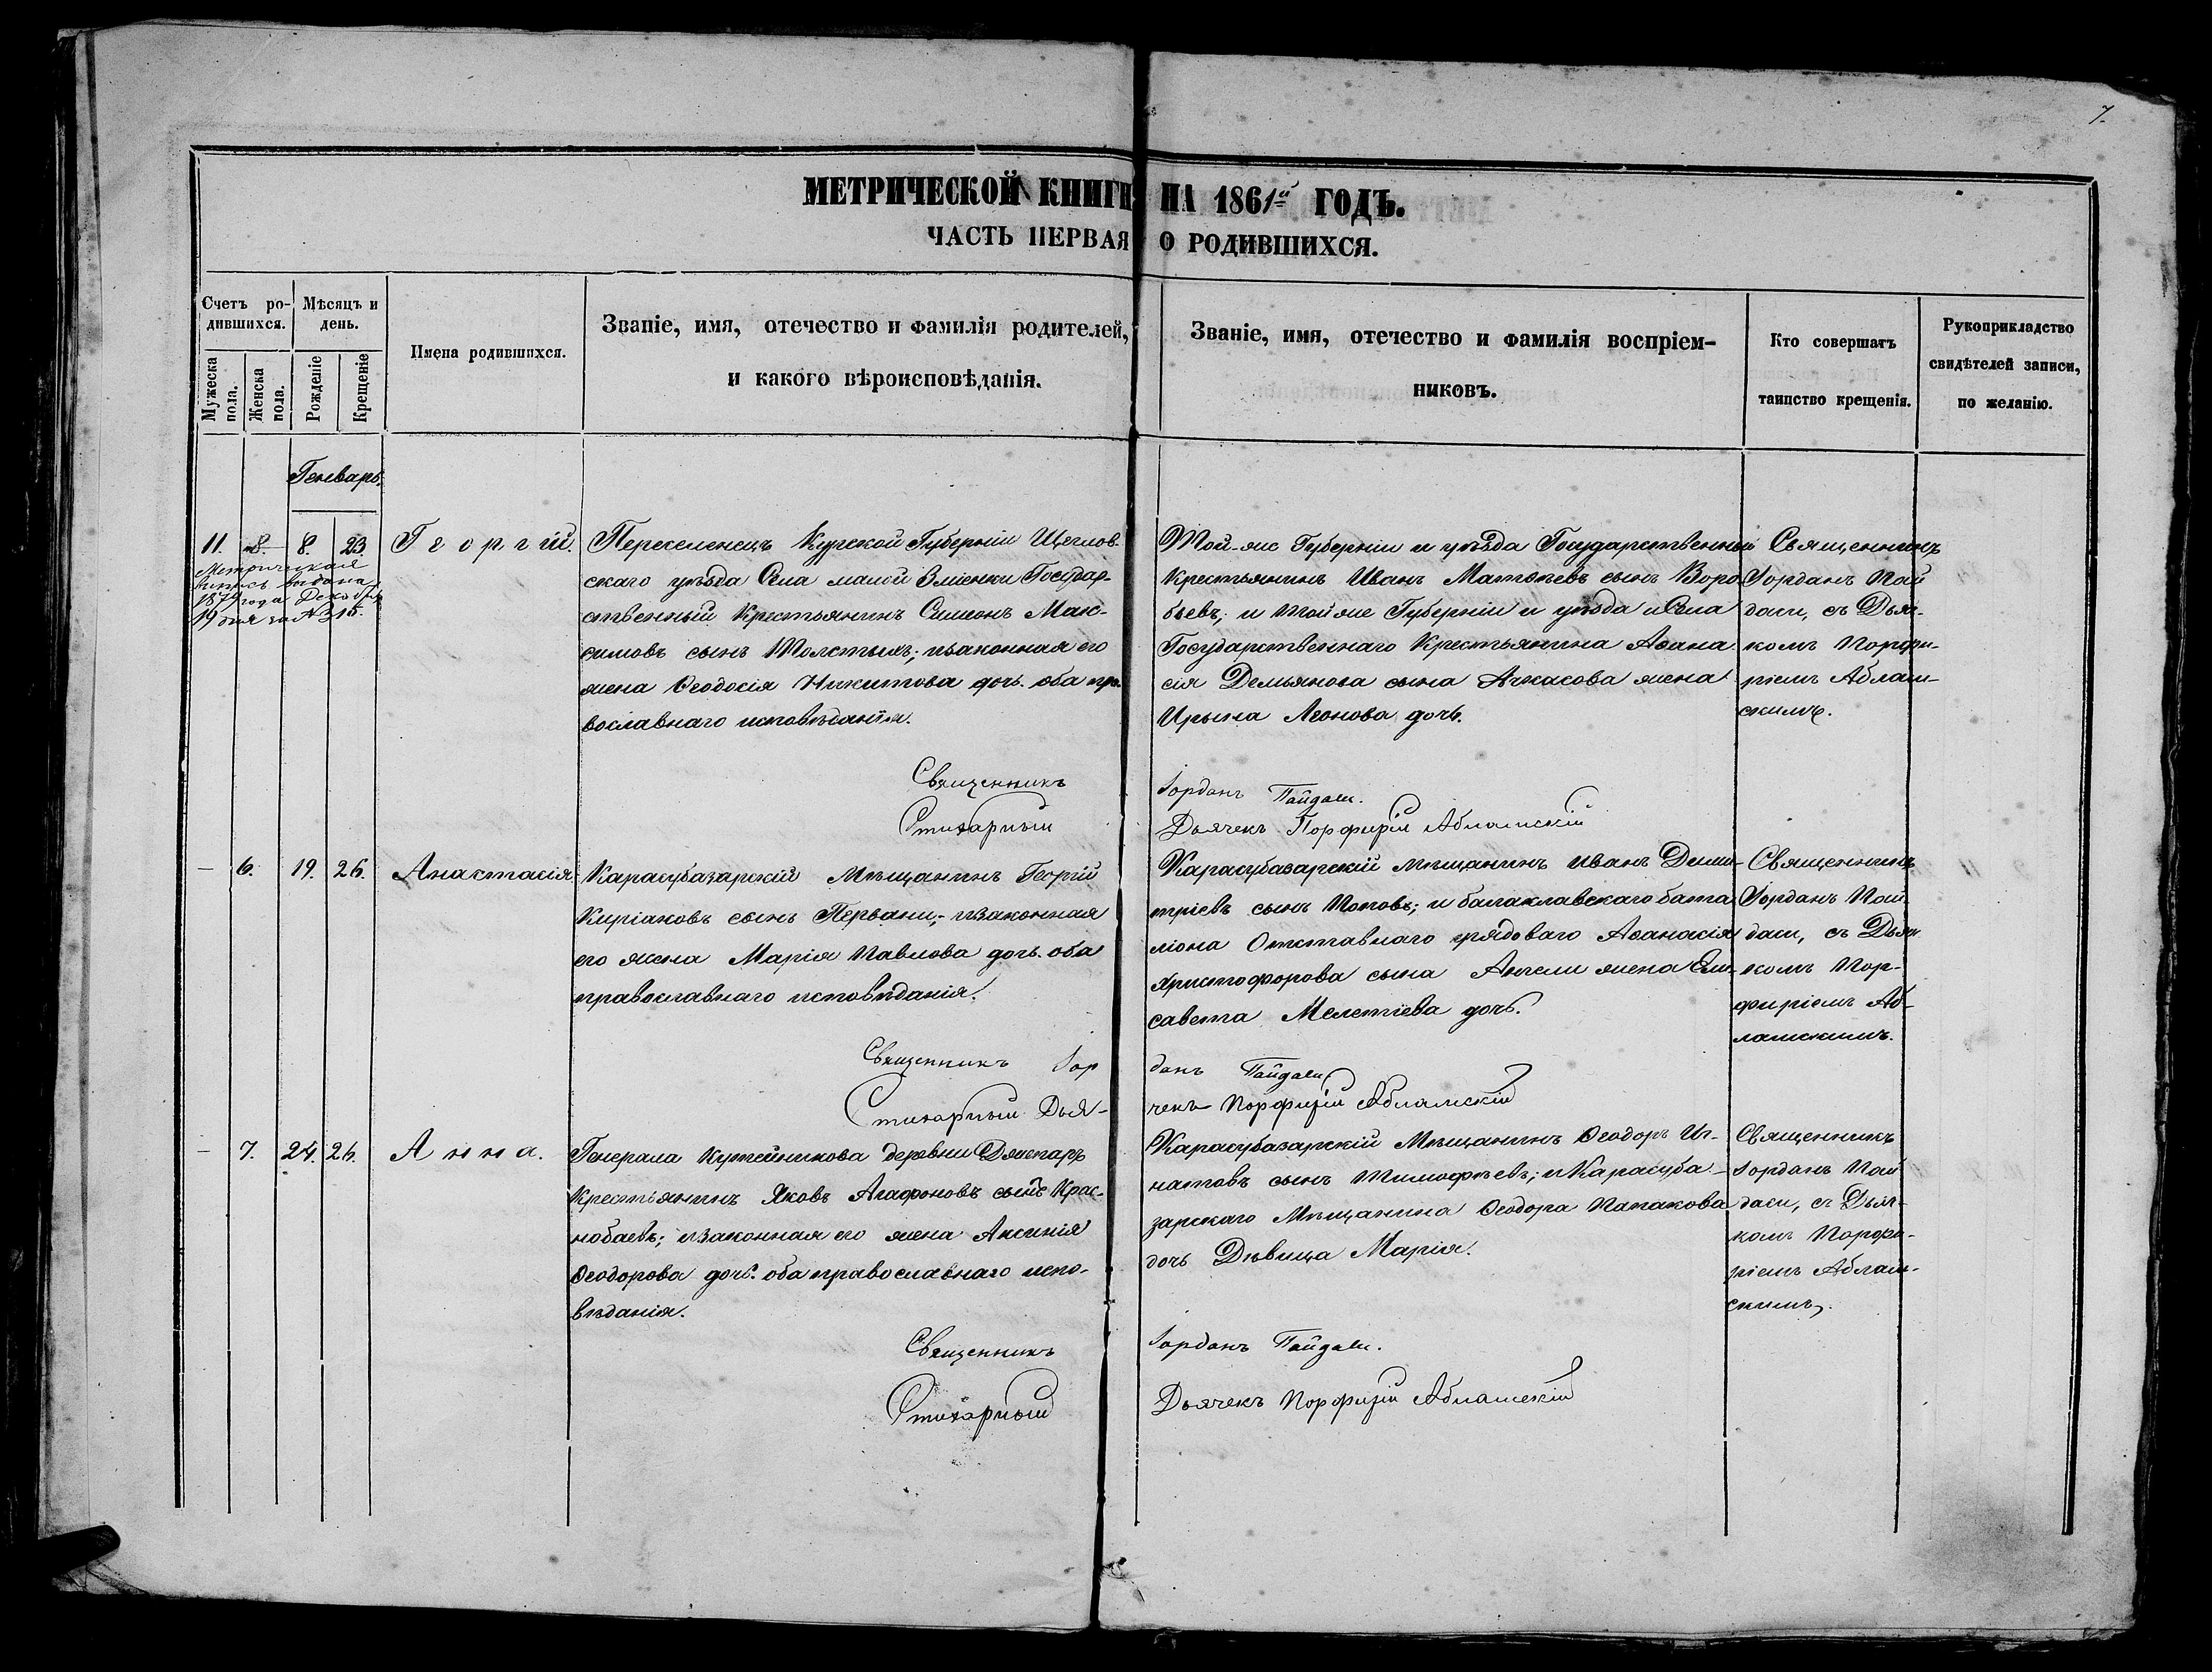 7.
МЕТРИЧЕСКОЙ КНИГИ НА 1861й ГОДЪ.
ЧАСТЬ ПЕРВАЯ О РОДИВШИХСЯ.
Счетъ ро-
дившихся.
Мужеска
пола.
Женска
пола.
Мѣсяцъ и
день.
Рожденіе
Крещеніе
Имена родившихся.
Званіе, имя, отечество и фамилія родителей,
и какого вѣроисповѣданія.
Званіе, имя, отечество и фамилія воспріем-
никовъ.
Кто совершатъ
таинство крещенія.
Рукоприкладство
свидѣтелей записи,
по желанію.
Генварь.
11. 8. 23. Георгій.
Метрическая
выпись выдана
1879 года Декабря
19 дня за №315.
Переселенецъ Курской Губерніи Щегров-
скаго уѣзда Села малой Змѣенки Государ-
ственный Крестьянинъ Симеонъ Мак-
симовъ сынъ Толстыхъ; и законная его
жена Ѳеодосія Никитова дочь. оба пра-
вославнаго исповѣданія.
Той-же Губерніи и уѣзда Государственный
Крестьянинъ Иванъ Матвѣевъ сынъ Воро-
бьевъ; и той же Губерніи и уѣзда и Села
Государственнаго Крестьянина Аѳана-
сія Демьянова сына Ачкасова жена
Ирына Леонова дочь.
Священникъ
Іорданъ Пай
даси, съ Дьяч-
комъ Порфи-
ріемъ Аблам-
скимъ.
Священникъ Іорданъ Пайдаси.
Стихарный Дьячекъ Порфирій Абламскій
— 6. 19. 26. Анастасія
Карасубазарскій Мѣщанинъ Георгій
Киріаковъ сынъ Первани; и законная
его жена Марія Павлова дочь. оба
православнаго исповѣданія.
Карасубазарскій мѣщанинъ Иванъ Дими-
тріевъ сынъ Поповъ; и балаклавскаго бата
ліона Отставнаго рядоваго Аѳанасія
Христофорова сына Анжели жена Ели-
савета Мелетіева дочь.
Священникъ
Іорданъ Пай
даси, съ Дьяч
комъ Пор-
фиріемъ Аб-
ламскимъ.
Священникъ Іорданъ Пайдаси
Стихарный Дьячекъ Порфирій Абламскій
— 7. 24. 26. Анна.
Генерала Кутейникова деревни
Крестьянинъ Яковъ Агафоновъ сынъ Крас-
нобаевъ; и законная его жена Аксинія
Ѳеодорова дочь. оба православнаго испо-
вѣданія.
Карасубазарскій Мѣщанинъ Ѳеодоръ Иг-
натовъ сынъ Тимофѣевъ; и Карасуба-
зарскаго Мѣщанина Ѳеодора Папакова
дочь Дѣвица Марія.
Священникъ
Іорданъ Пай
даси, съ Дьяч-
комъ Порфи-
ріемъ Аблам-
скимъ.
Священникъ Іорданъ Пайдаси.
Стихарный Дьячекъ Порфирій Абламскій